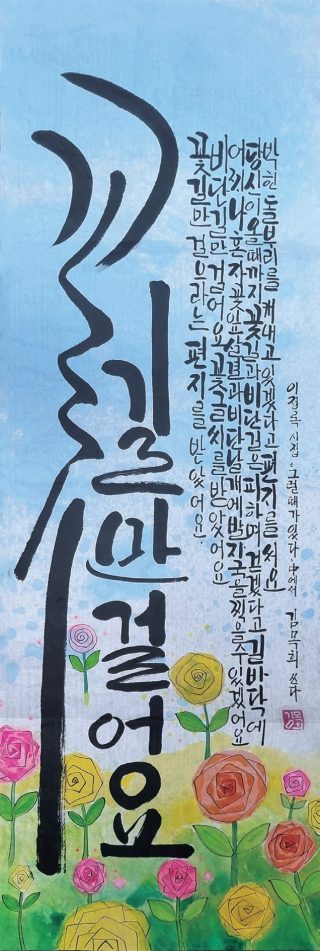 꽃길만 걸어요
꽃길만 걸으라는 편지를 받았어요.
비단길만 걸어요 꽃글씨를 받았어요
어찌 나 혼자 꽃잎 살결과 비단 날개에 발자국을 찍을 수 있겠어요
당신이 올 때까지 꽃길과 비단길은 피하며 걷겠다고 길바닥에
박힌 돌부리를 캐내고 있겠다고 편지를 써요
이정록 시집 그럴때가 있다 中에서 김목희 쓰다